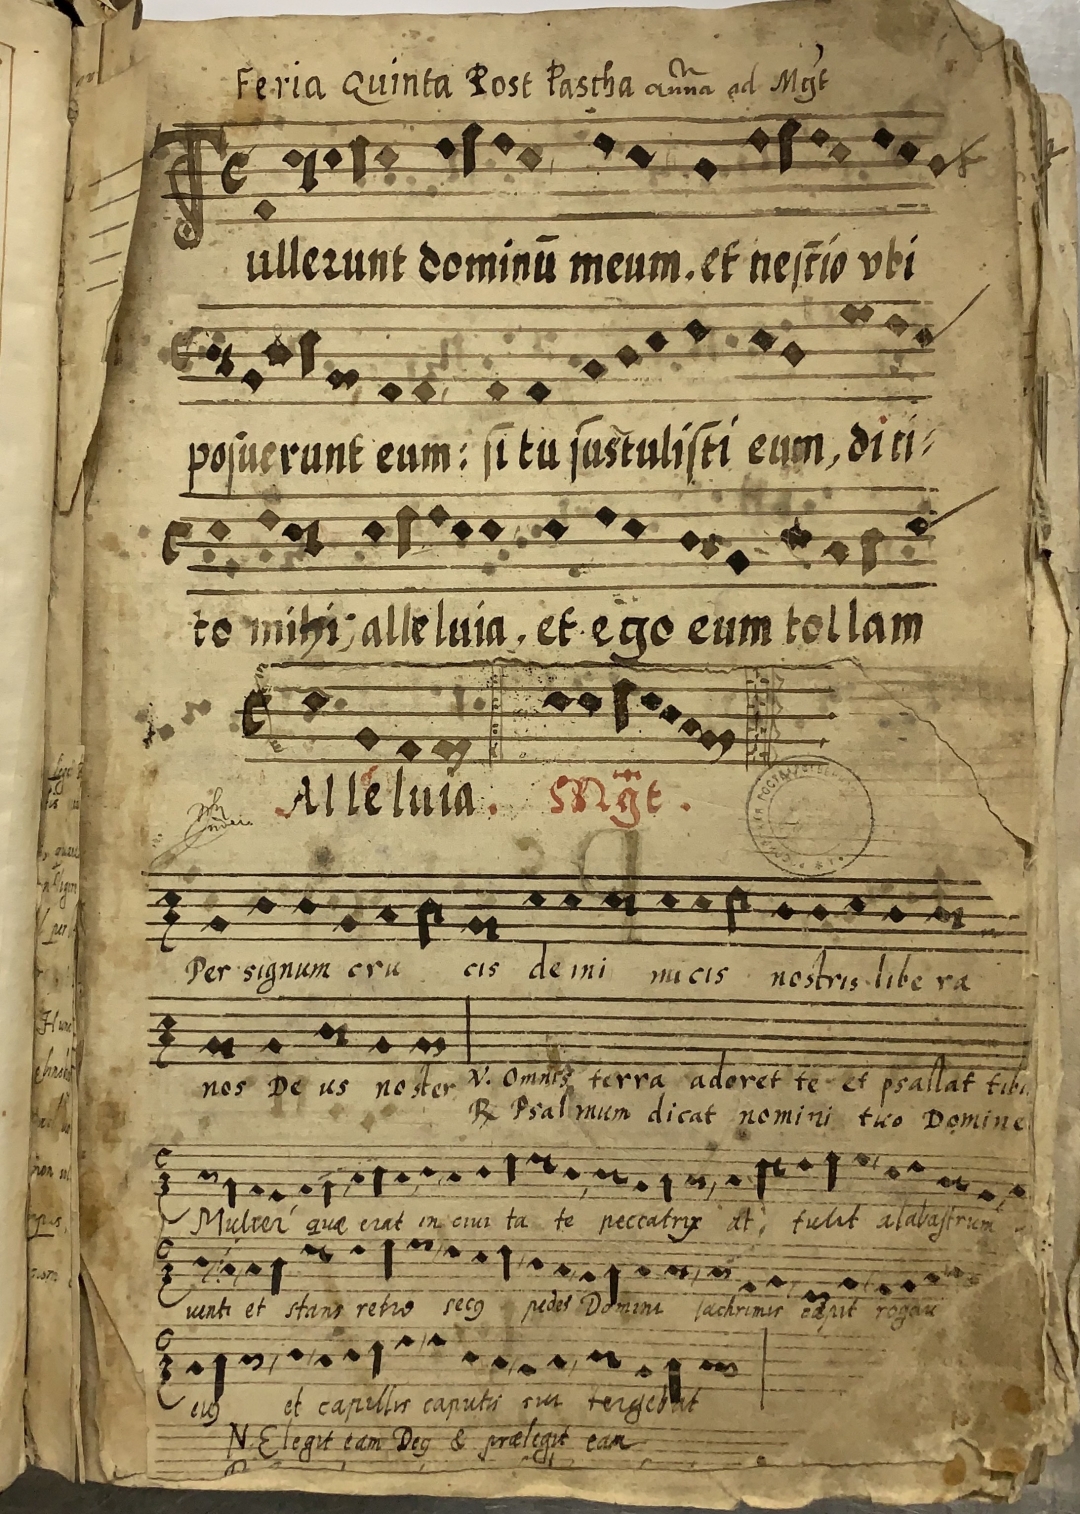 Feria Quinta Post Pascha anna ad Mgt
Tullerunt dominū meum. et nescio vbi
posuerunt eum: si tu sustulisti eum, dici-
to mihi; alleluia, et ego eum tollam
Alleluia. Mgt.
Per signum cru cis de ini micis nostris libe ra
nos De us noster V. Omnis terra adoret te et psallat tibi
R Psalmum dicat nomini tuo Domine
Mulier quæ erat in ciui ta te peccatrix at tulit alabastrum
uenti et stans retro secq pedes Domini lachrimis cæpit rogau
eiq et capillis capitis sui tergebat
V. Elegit eam Deq & prælegit eam